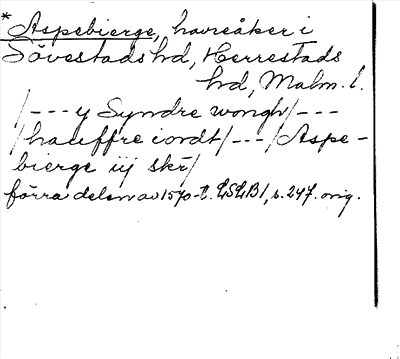 * Aspebierge, havreåker i
Sövestads hd, Herrestads
hd, Malm. l.
/--- y Syndre wongh/---
/hauffre iordt/---/Aspe-
bierge iij skr/
förra delen av 1570-t. LSLB1, s. 247. orig.